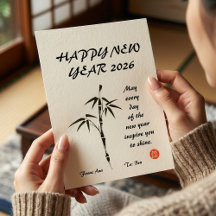 HAPPY NEW
YEAR 2026
May
every
day
of the
new year
inspire you
to shine.
From: Ana
To: Ben